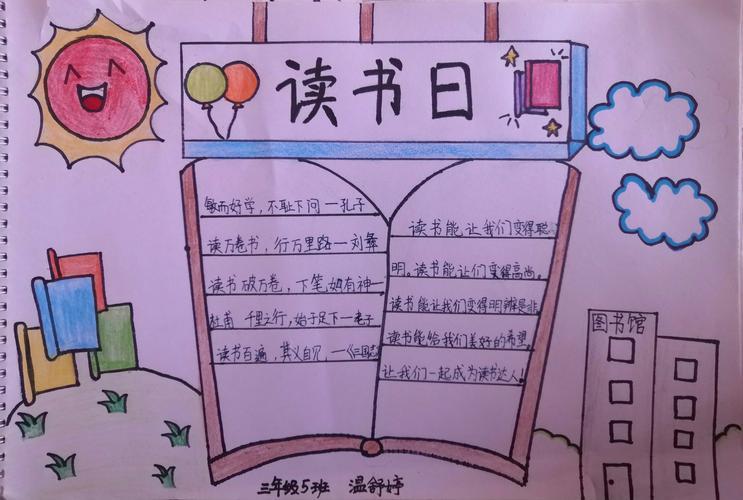 读书日
敏而好学，不耻下问 — 孔子
读万卷书，行万里路 — 刘彝
读书破万卷，下笔如有神 —
杜甫 千里之行，始于足下 — 老子
读书百遍，其义自见，—《三国志
读书能让我们变得聪
明。读书能让们变得高尚。
读书能让我们变得明辨是非。
读书能给我们美好的希望。
让我们一起成为读书达人！
图书馆
三年级5班 温舒婷